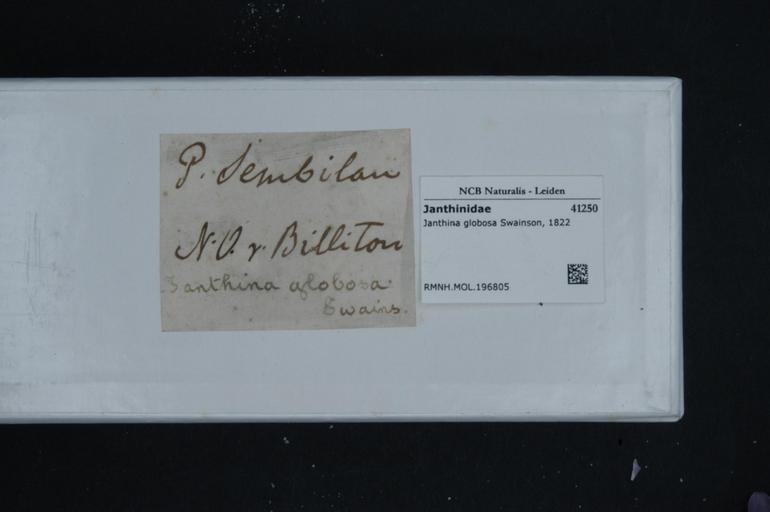 P. Sembilan
N.O. v. Billiton
Janthina globosa
Swains.
NCB Naturalis - Leiden
Janthinidae 41250
Janthina globosa Swainson, 1822
RMNH.MOL.196805